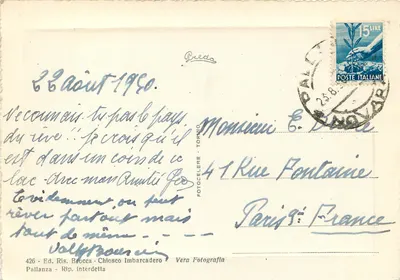 22 août 1950.
Reconnais tu pas le pays
du rêve !! Je crois qu'il
est dans un coin de ce
lac. Avec mon Amitié
Evidemment, on peut
rêver partout mais
tout de même
Monsieur E.
41 Rue Fontaine
Paris 9e. France
15 LIRE
POSTE ITALIANE
23.8
NOVARA
FOTOCELERE - TORINO
426 - Ed. Ris. Bacoca - Chiosco Imbarcadero - Vera Fotografia
Pallanza - Rip. Interdetta